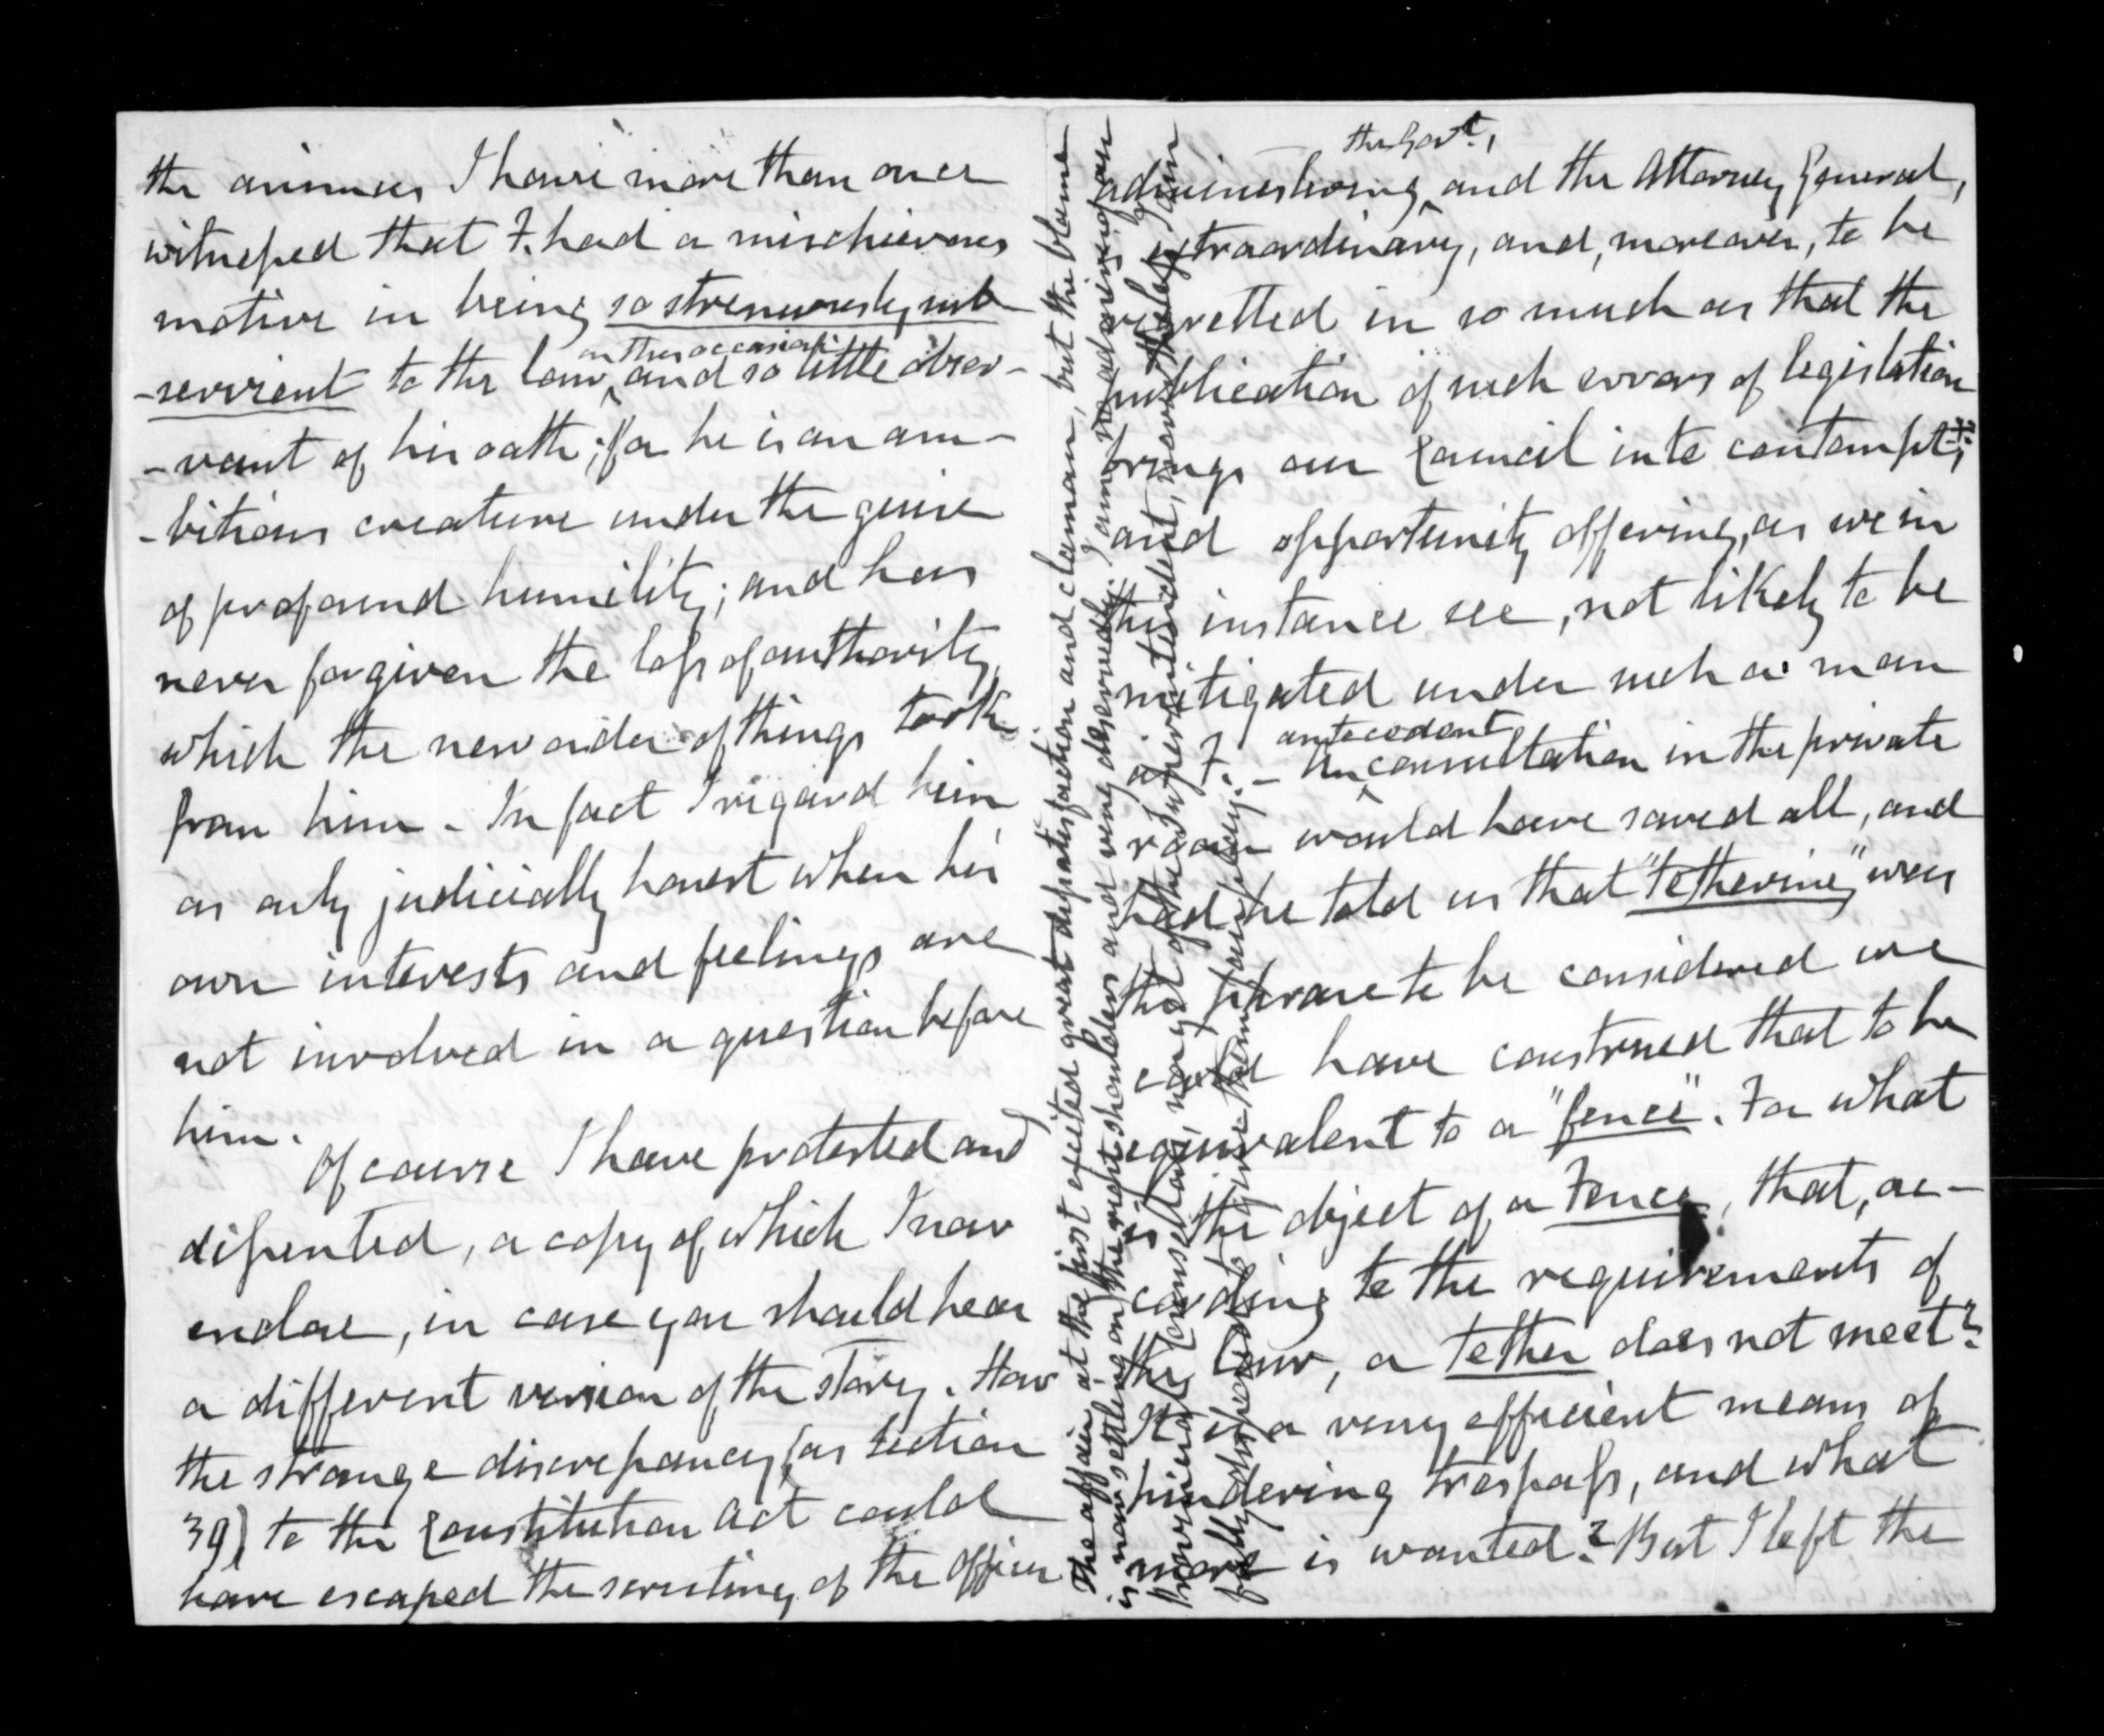 the animus I have more than once
witnessed that F. had a mischievous
motive in being so strenuously sub
-servient to the law on this occasion and so little obser-
-vant of his oath; for he is an am-
-bitious creature under the guise
of profound humility; and has
never forgiven the loss of authority
which the new order of things took
from him - In fact I regard him
as only judicially honest when his
own interests and feelings are
not involved in a question before
him.
Of course I have protested and
dissented, a copy of which I now
enclose, in case you should hear
a different version of the story. How
the strange discrepancy (as section
39) to the Constitution Act could
have escaped the scrutiny of the Officer
administering the Govt., and the Attorney General,
is extraordinary, and, moreover, to be
regretted in so much as that the
publication of such errors of legislation
brings our Council into contempt;
and opportunity offering, as we in
this instance see, not likely to be
mitigated under such a man
as F. - An antecedent consultation in the private
room would have saved all, and
had he told us that "tethering" was
the phrase to be considered we
could have construed that to be
equivalent to a "fence". For what
is the object of a Fence, that, ac-
cording to the requirements of
the law, a tether does not meet?
It is a very efficient means of
hindering trespass, and what
more is wanted? But I left the
The affair at the first excited great dissatisfaction and clamour, but the blame
is now settling on the right shoulders and very deservedly. I am no admirer of our
Provincial Councillors, nor yet of the Superintendent, nevertheless I am
fully disposed to give them fair play.